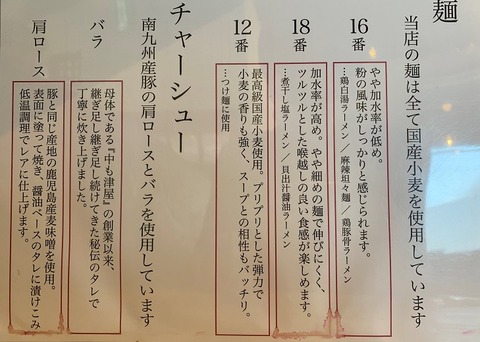 麺
当店の麺は全て国産小麦を使用しています
16番
やや加水率が低め。
粉の風味がしっかりと感じられます。
…鶏白湯ラーメン／麻辣坦々麺／鶏豚骨ラーメン
18番
加水率が高め。やや細めの麺で伸びにくく、
ツルツルとした喉越しの良い食感が楽しめます。
…煮干し塩ラーメン／貝出汁醤油ラーメン
12番
最高級国産小麦使用。プリプリとした弾力で
小麦の香りも強く、スープとの相性もバッチリ。
…つけ麺に使用
チャーシュー
南九州産豚の肩ロースとバラを使用しています
バラ
母体である『中も津屋』の創業以来、
継ぎ足し継ぎ足し続けてきた秘伝のタレで
丁寧に炊き上げました。
肩ロース
豚と同じ産地の鹿児島産麦味噌を使用。
表面に塗って焼き、醤油ベースのタレに漬けこみ
低温調理でレアに仕上げます。